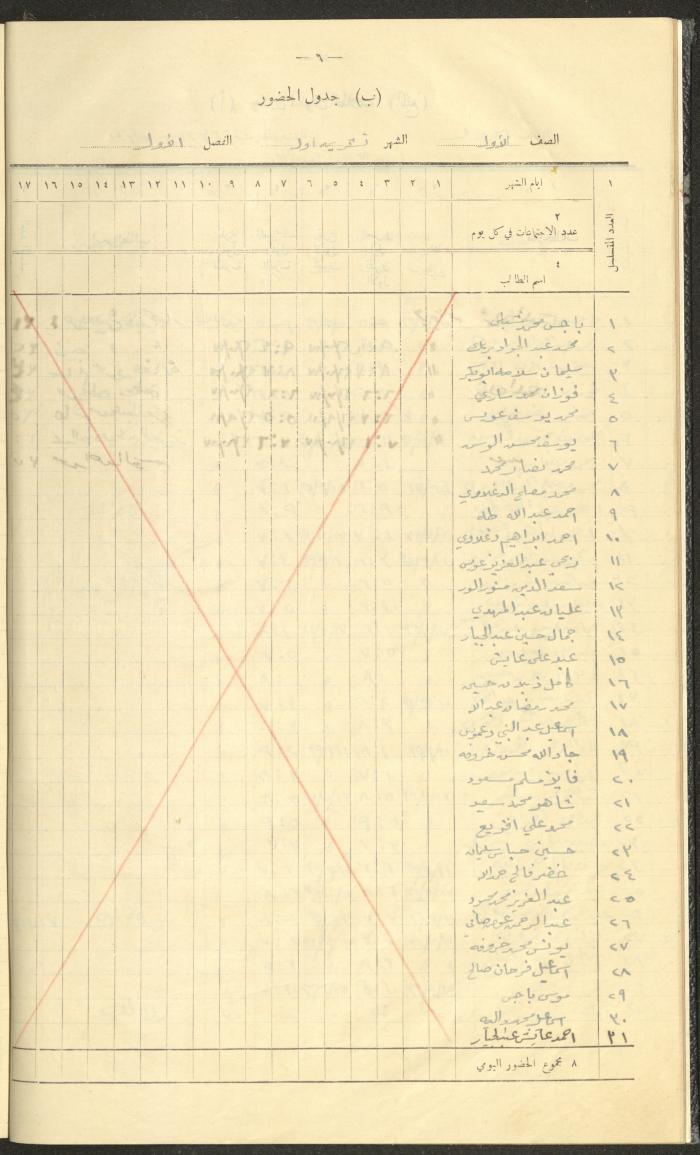 — ٦ —
(ب) جدول الحضور
الصف الأول الشهر تشرين اول الفصل الأول
١ ايام الشهر ١ ٢ ٣ ٤ ٥ ٦ ٧ ٨ ٩ ١٠ ١١ ١٢ ١٣ ١٤ ١٥ ١٦ ١٧
العدد المتسلسل
٢
عدد الاجتماعات في كل يوم
٤
اسم الطالب
١ باجس محمد
٢ محمد عبد الجواد
٣ سليمان سلامه ابوبكر
٤ فوزان محمد
٥ محمد يوسف عويس
٦ يوسف محسن
٧ محمد نصار محمد
٨ محمد مصلح الدغلاوي
٩ احمد عبد الله طه
١٠ احمد ابراهيم دغلاوي
١١ ربحي عبد العزيز عويس
١٢ سعد الدين
١٣ عليان عبد المهدي
١٤ جمال حسين عبد الجبار
١٥ عبد علي عايش
١٦ كامل ذيبان حسين
١٧ محمد رمضان عبد الله
١٨ اسماعيل عبد النبي
١٩ جاد الله محسن خروفه
٢٠ فايز مسلم مسعود
٢١ شاهر محمد سعيد
٢٢ محمد علي اقريع
٢٣ حسين عباس سليمان
٢٤ خضر فالح حمد الله
٢٥ عبد العزيز محمد محمود
٢٦ عبد الرحمن عوض
٢٧ يونس محمد خروفه
٢٨ اسماعيل فرحان صالح
٢٩ موسى باجس
٣٠ اسماعيل محمد
٣١ احمد عايش عبد الجبار
٨ مجموع الحضور اليومي